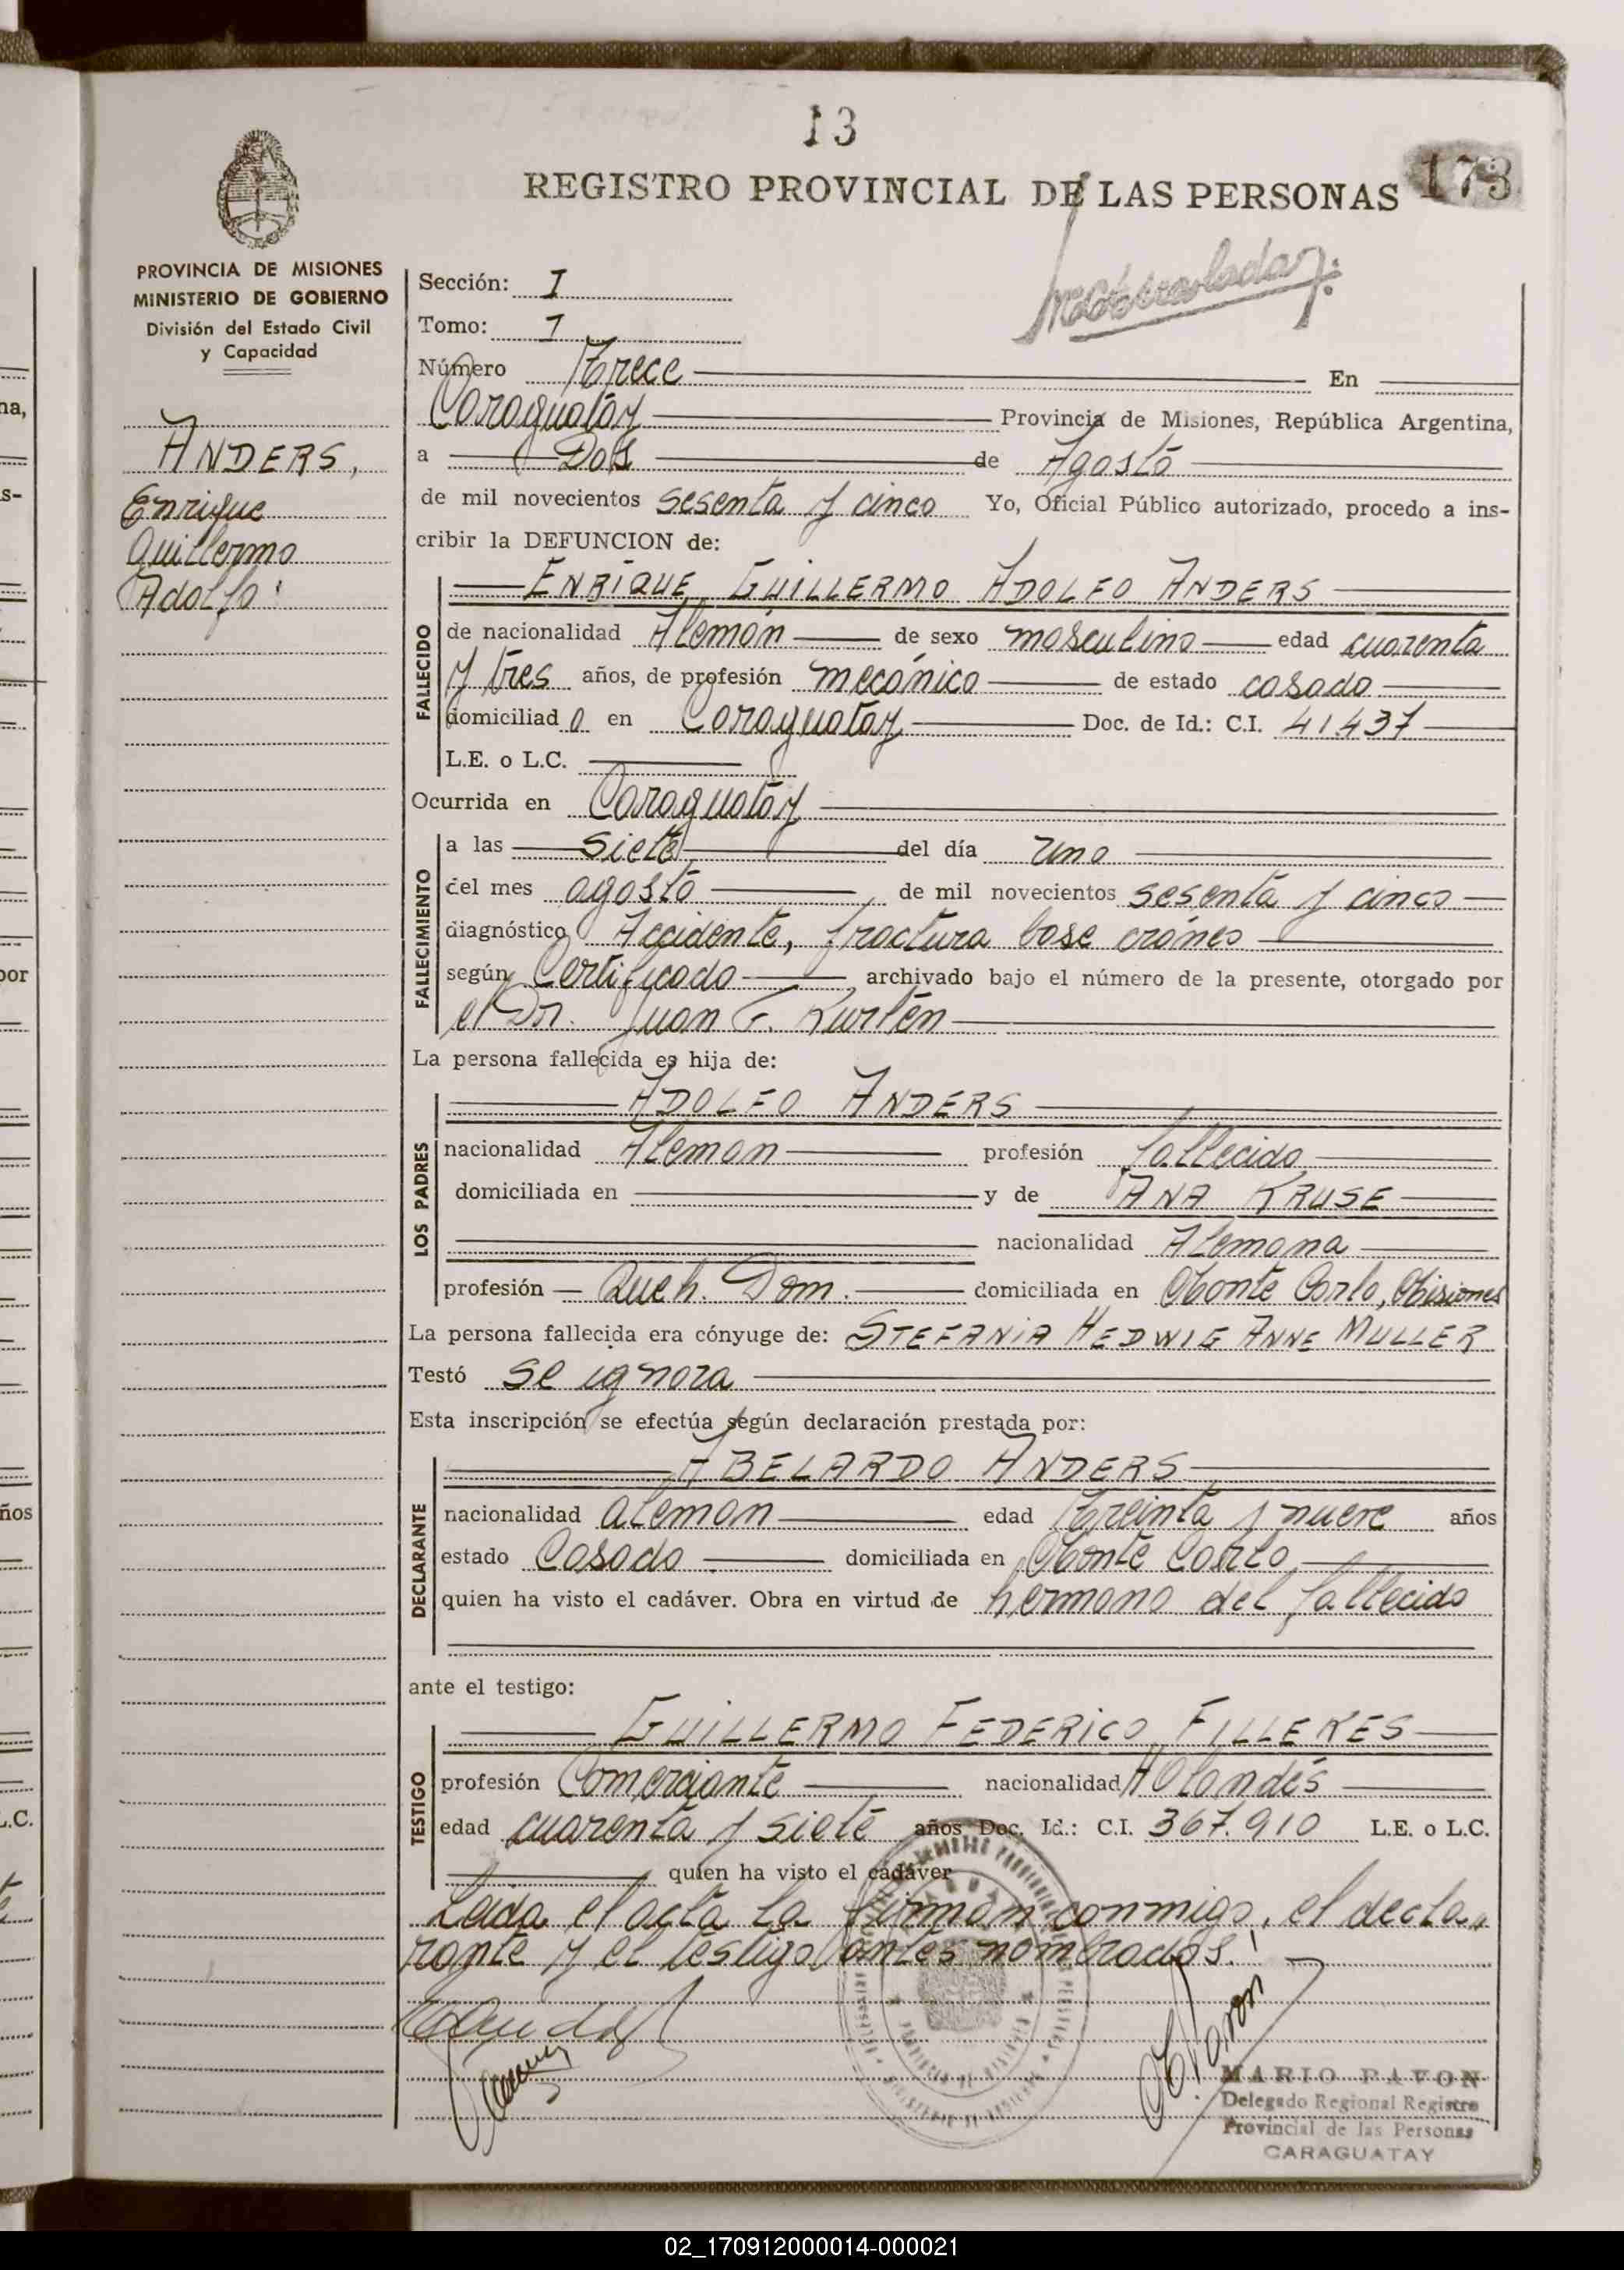 13
173
REGISTRO PROVINCIAL DE LAS PERSONAS
PROVINCIA DE MISIONES
MINISTERIO DE GOBIERNO
División del Estado Civil
y Capacidad
ANDERS,
Enrique
Guillermo
Adolfo:
Sección: I
Tomo: I
Número Trece En
Caraguatay Provincia de Misiones, República Argentina,
a Dos de Agosto
de mil novecientos sesenta y cinco Yo, Oficial Público autorizado, procedo a ins-
cribir la DEFUNCION de:
FALLECIDO
ENRIQUE GUILLERMO ADOLFO ANDERS
de nacionalidad Alemán de sexo masculino edad cuarenta
y tres años, de profesión mecánico de estado casado
domiciliad o en Caraguatay Doc. de Id.: C.I. 41.437
L.E. o L.C.
Ocurrida en Caraguatay
FALLECIMIENTO
a las siete del día uno
del mes agosto de mil novecientos sesenta y cinco
diagnóstico Accidente, fractura base cráneo
según Certificado archivado bajo el número de la presente, otorgado por
el Dr. Juan F. Kurtén
La persona fallecida es hija de:
LOS PADRES
ADOLFO ANDERS
nacionalidad Aleman profesión fallecido
domiciliada en y de ANA KRUSE
nacionalidad Alemana
profesión Queh. Dom. domiciliada en Monte Carlo, Misiones
La persona fallecida era cónyuge de: STEFANIA HEDWIG ANNE MULLER
Testó se ignora
Esta inscripción se efectúa según declaración prestada por:
DECLARANTE
ABELARDO ANDERS
nacionalidad aleman edad treinta y nueve años
estado Casado domiciliada en Monte Carlo
quien ha visto el cadáver. Obra en virtud de hermano del fallecido
ante el testigo:
TESTIGO
GUILLERMO FEDERICO FILLEKES
profesión Comerciante nacionalidad Holandés
edad cuarenta y siete años Doc. Id.: C.I. 367.910 L.E. o L.C.
quien ha visto el cadáver
Leida el acta la firman conmigo, el decla-
rante y el testigo antes nombrados.
MARIO PAVON
Delegado Regional Registro
Provincial de las Personas
CARAGUATAY
02_170912000014-000021